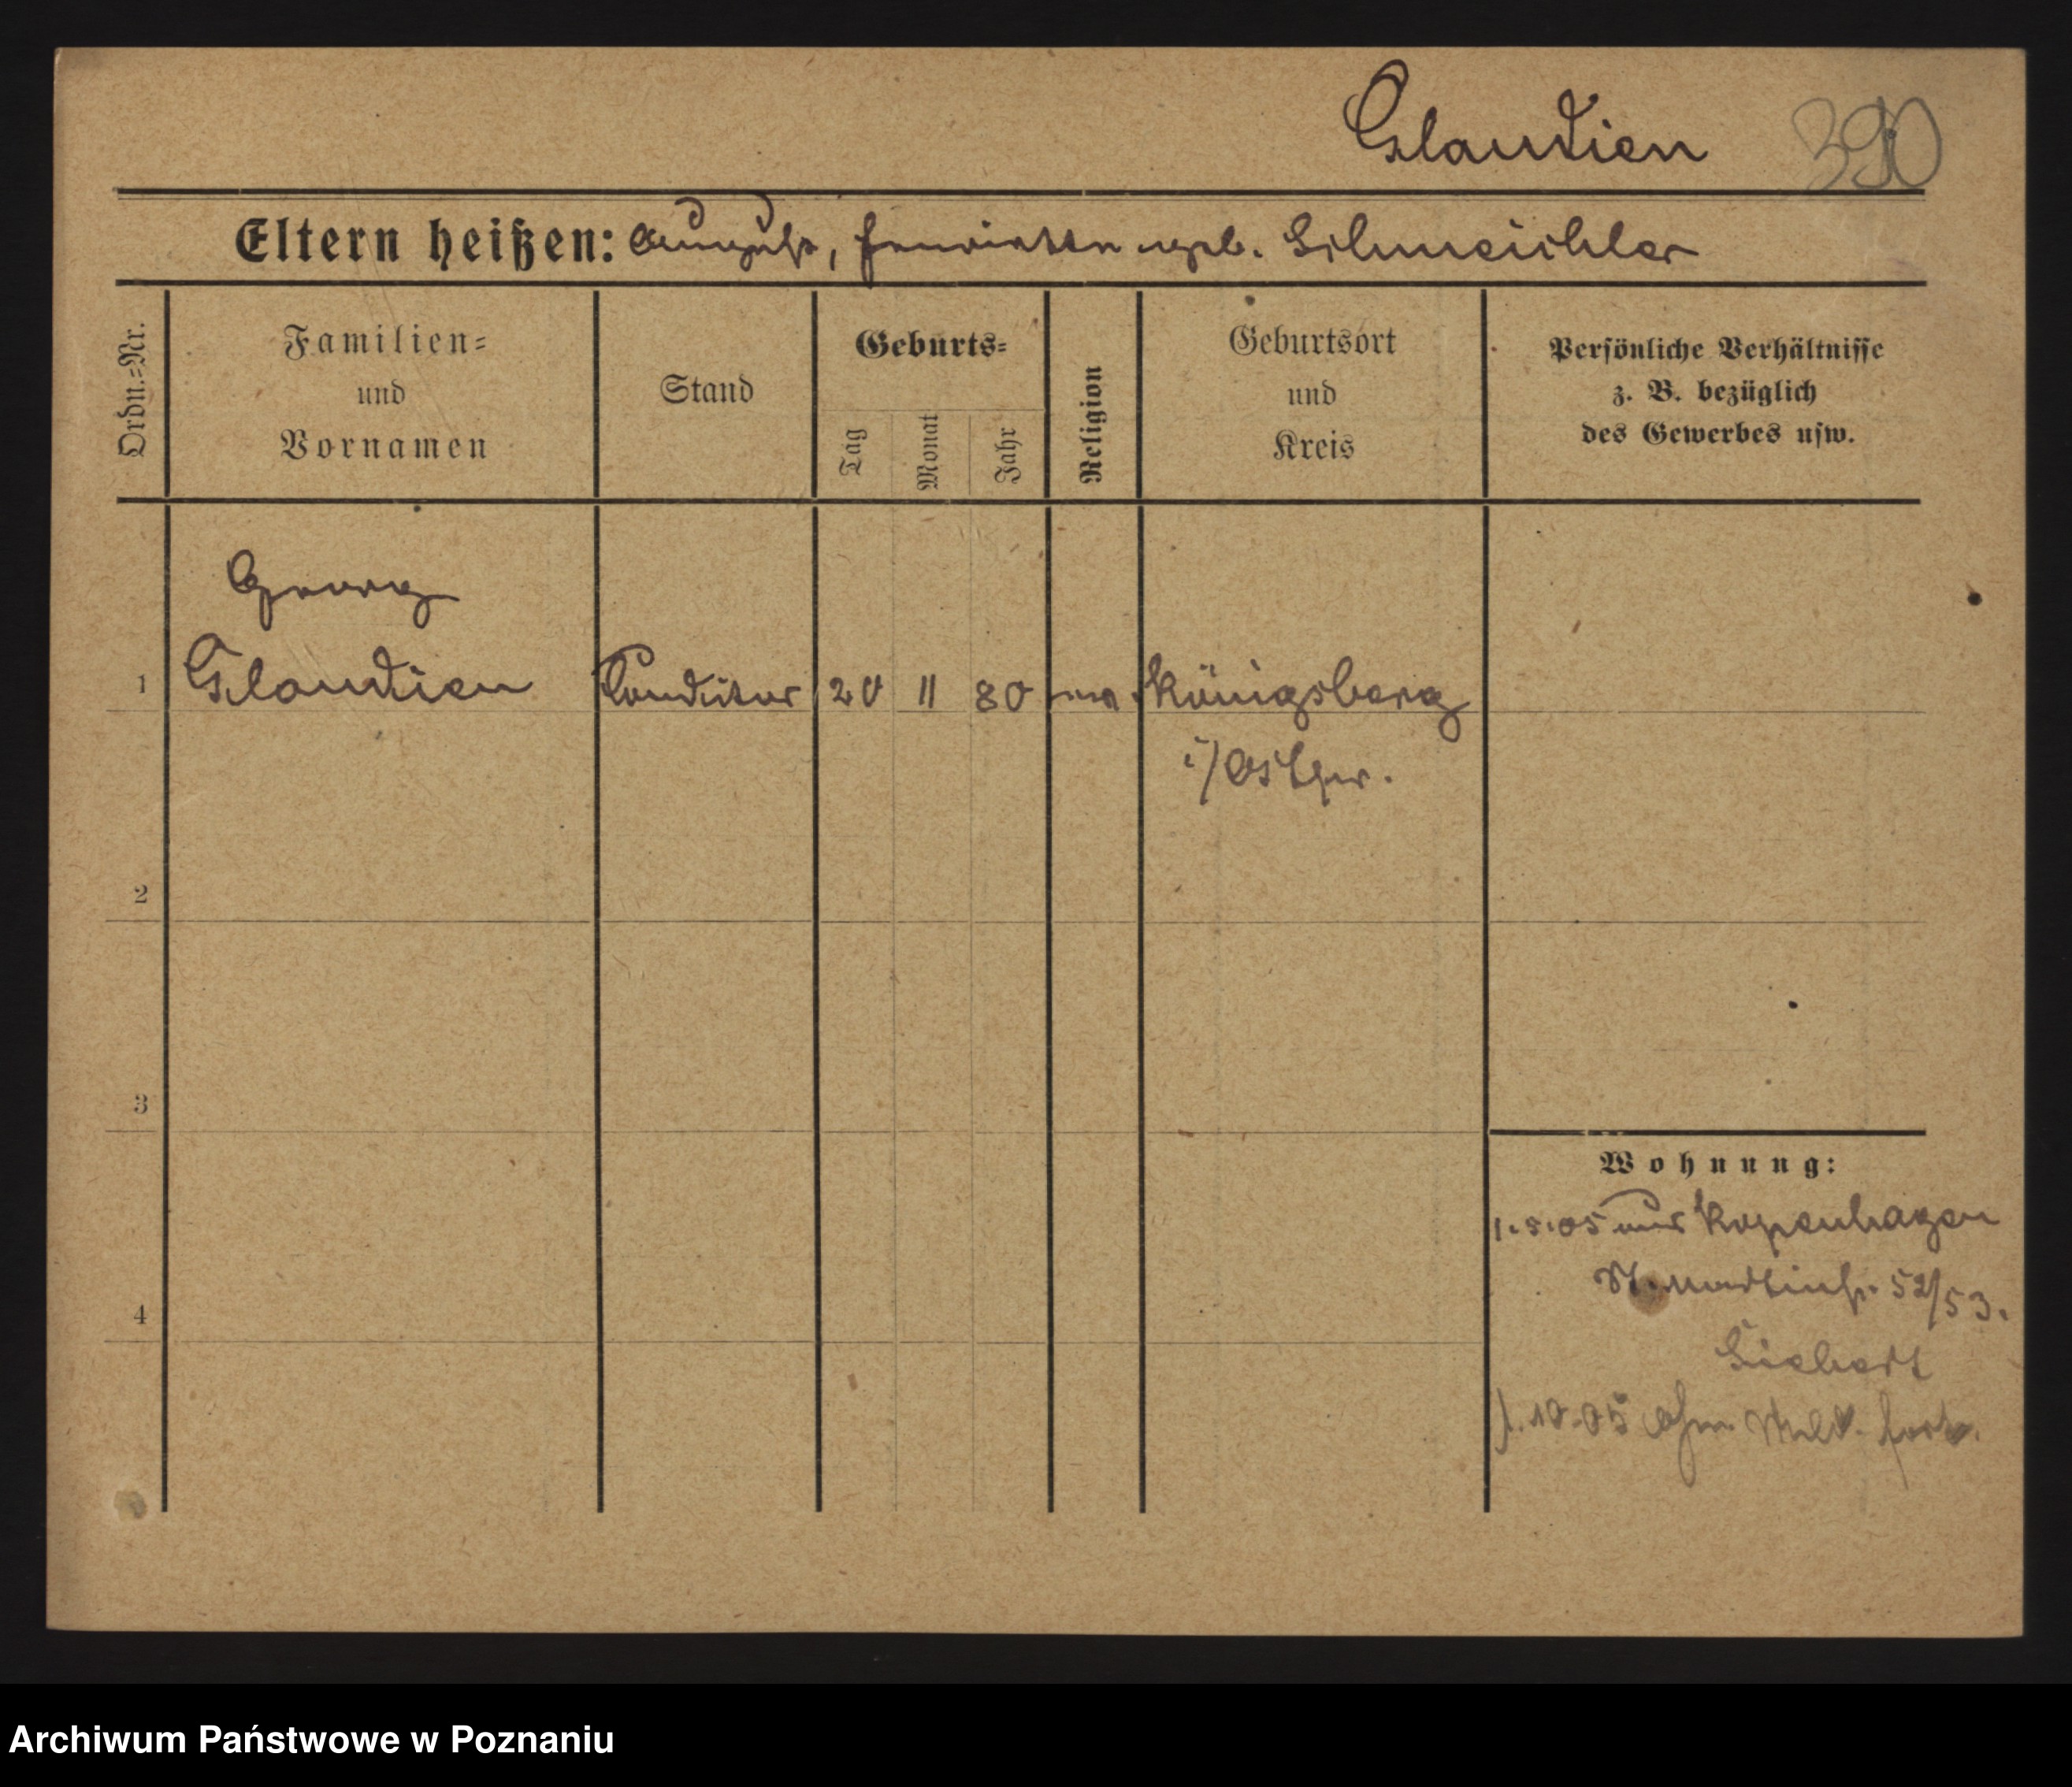 Glaudien 390
Eltern heißen: August, Henriette geb. Schmeichler
Ordn.=Nr.
Familien=
und
Vornamen
Stand
Geburts=
Tag
Monat
Jahr
Religion
Geburtsort
und
Kreis
Persönliche Verhältnisse
z. B. bezüglich
des Gewerbes usw.
Georg
1 Glaudien Conditor 20 11 80 Königsberg
i/Ostpr.
2
3
4
Wohnung:
1.5.05 aus Kopenhagen
St. Martinstr. 52/53.
Siebert
1.10.05
Archiwum Państwowe w Poznaniu